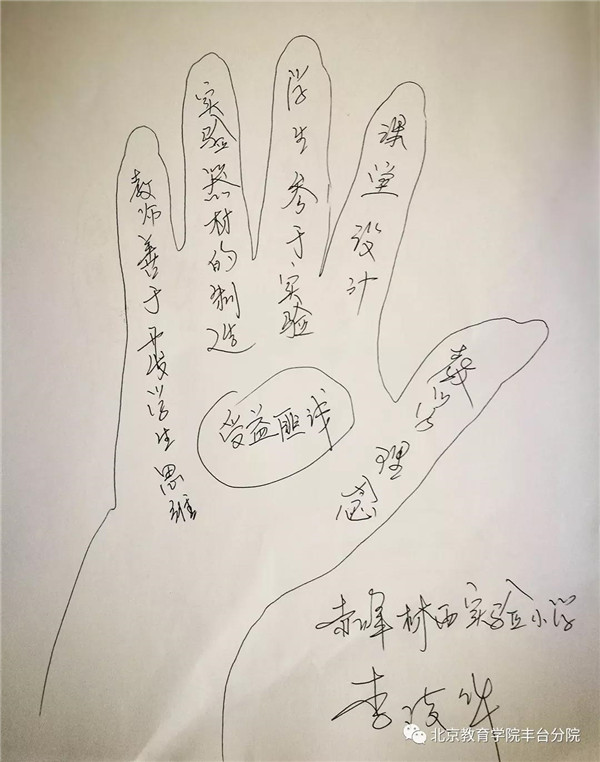 教师善于开发学生思维
实验器材的制造
学生参于实验
课堂设计
教学理念
受益匪浅
赤峰林西实验小学
李
北京教育学院丰台分院